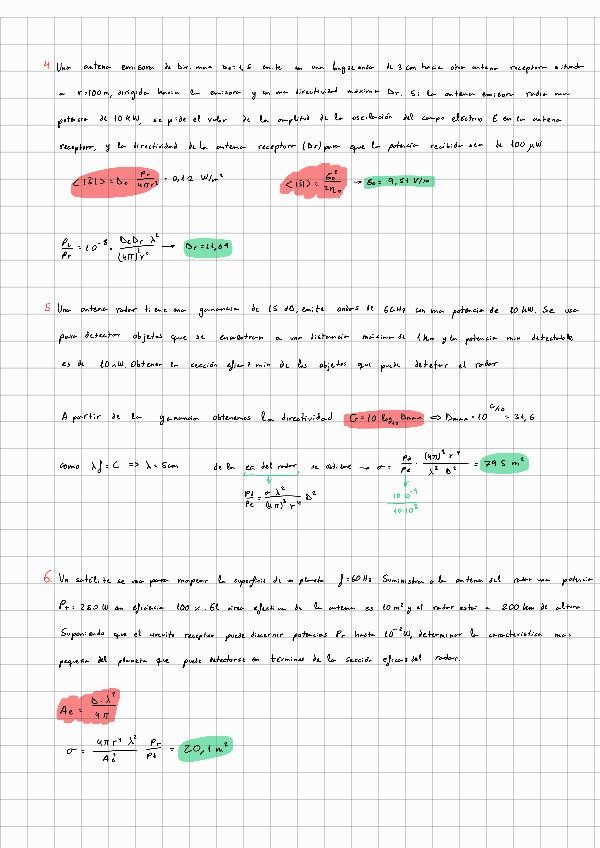 4. Una antena emisora de Dir. max De=1,5 emite en una long de onda de 3 cm hacia otra antena receptora situada
a r=100m, dirigida hacia la emisora y en una directividad máxima Dr. Si la antena emisora radia una
potencia de 10 kW, se pide el valor de la amplitud de la oscilación del campo eléctrico E en la antena
receptora, y la directividad de la antena receptora (Dr) para que la potencia recibida sea de 100 μW
<|S|> = D₀ Pr/4πr² = 0,12 W/m² <|S|> = E₀²/2η₀ → E₀ = 9,51 V/m
Pr = 10⁻⁸ = De Dr λ²/(4π)² r² → Dr = 11,69
5. Una antena radar tiene una ganancia de 15 dB, emite ondas de 6GHz con una potencia de 10 kW. Se usa
para detectar objetos que se encuentran a una distancia máxima de 1 km y la potencia min detectable
es de 10 nW. Obtener la sección eficaz min de los objetos que puede detetar el radar
A partir de la ganancia obtenemos la directividad G = 10 log₁₀ Dmax ⇒ Dmax = 10^(G/10) = 31,6
como λf = C => λ = 5cm de la ec. del radar se obtiene → σ = Pd/Pe · (4π)³ r⁴/λ² D² = 795 m²
Pd/Pe = σ λ²/(4π)³ r⁴ D² 10·10⁻⁹/10·10³
6. Un satélite se usa para mapear la superficie de un planeta f=60 Hz Suministra a la antena del radar una potencia
Pt = 250 W en eficiencia 100 %. El área efectiva de la antena es 10 m² y el radar está a 200 km de altura
Suponiendo que el circuito receptor puede discernir potencias Pr hasta 10⁻¹² W, determinar la característica mas
pequeña del planeta que puede detectarse en términos de la sección eficaz del radar.
Ae = D·λ²/4π
σ = 4π r⁴ λ²/Ae² Pr/Pt = 20,1 m²